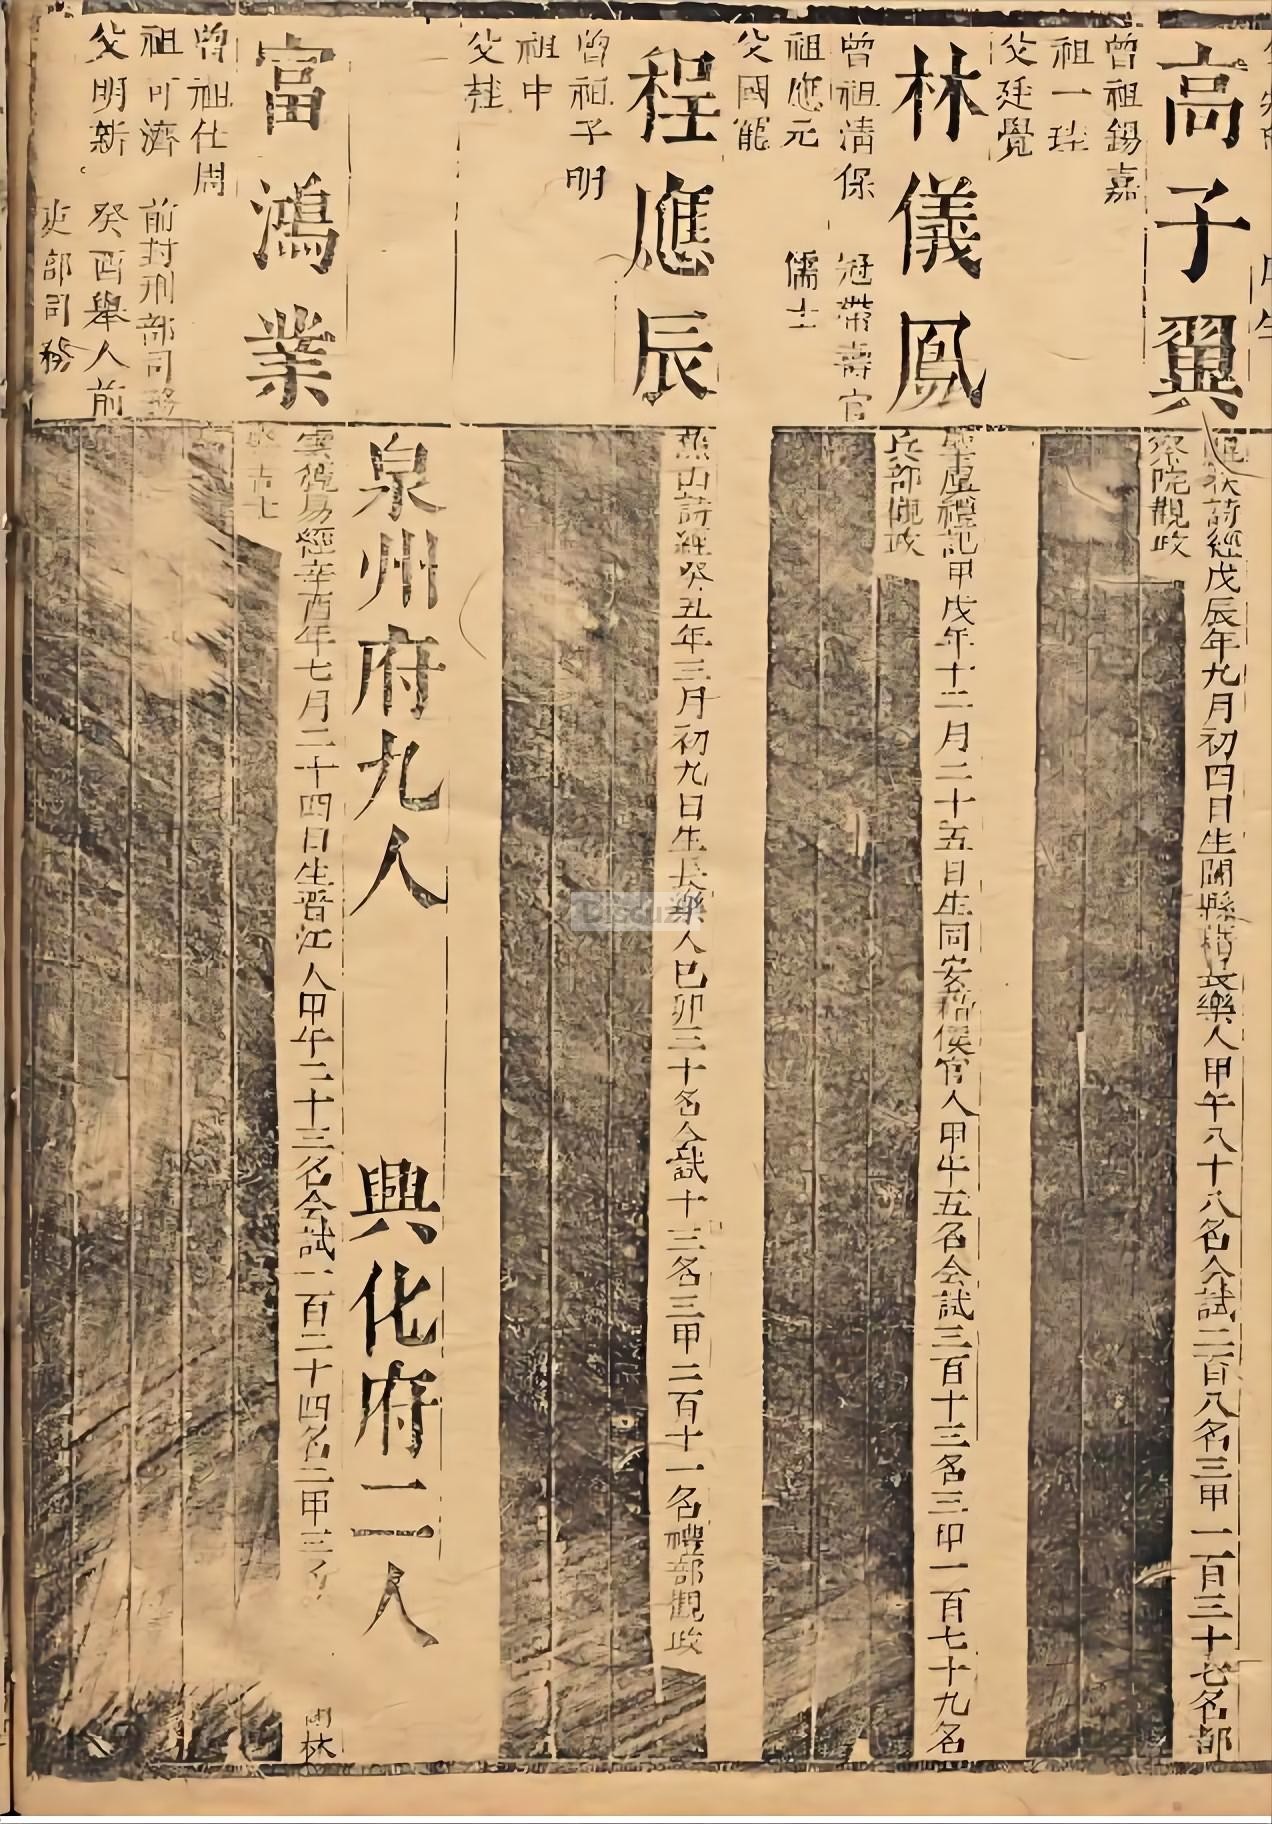 高子翼
詩經戊辰年九月初四日生閩縣籍長樂人甲午八十八名会試二百八名三甲一百三十七名都
察院觀政
曾祖錫嘉
祖一
父廷覺
林儀鳳
肇虞禮記甲戌年十二月二十五日生同安籍侯官人甲午五名会試三百十三名三甲一百七十九名
兵部觀政
曾祖清保 冠帶壽官
祖應元 儒士
父國寵
程應辰
燕山詩經癸丑年三月初九日生長樂人已卯三十名会試十三名三甲二百十一名禮部觀政
曾祖子明
祖中
父桂
泉州府九人 興化府二人
富鴻業
雲從易經辛酉年七月二十四日生晋江人甲午二十三名会試一百二十四名二甲三 林
吉士
曾祖仕周
祖可濟 前封刑部司務
父明新 癸酉舉人前
吏部司務
Discuz!